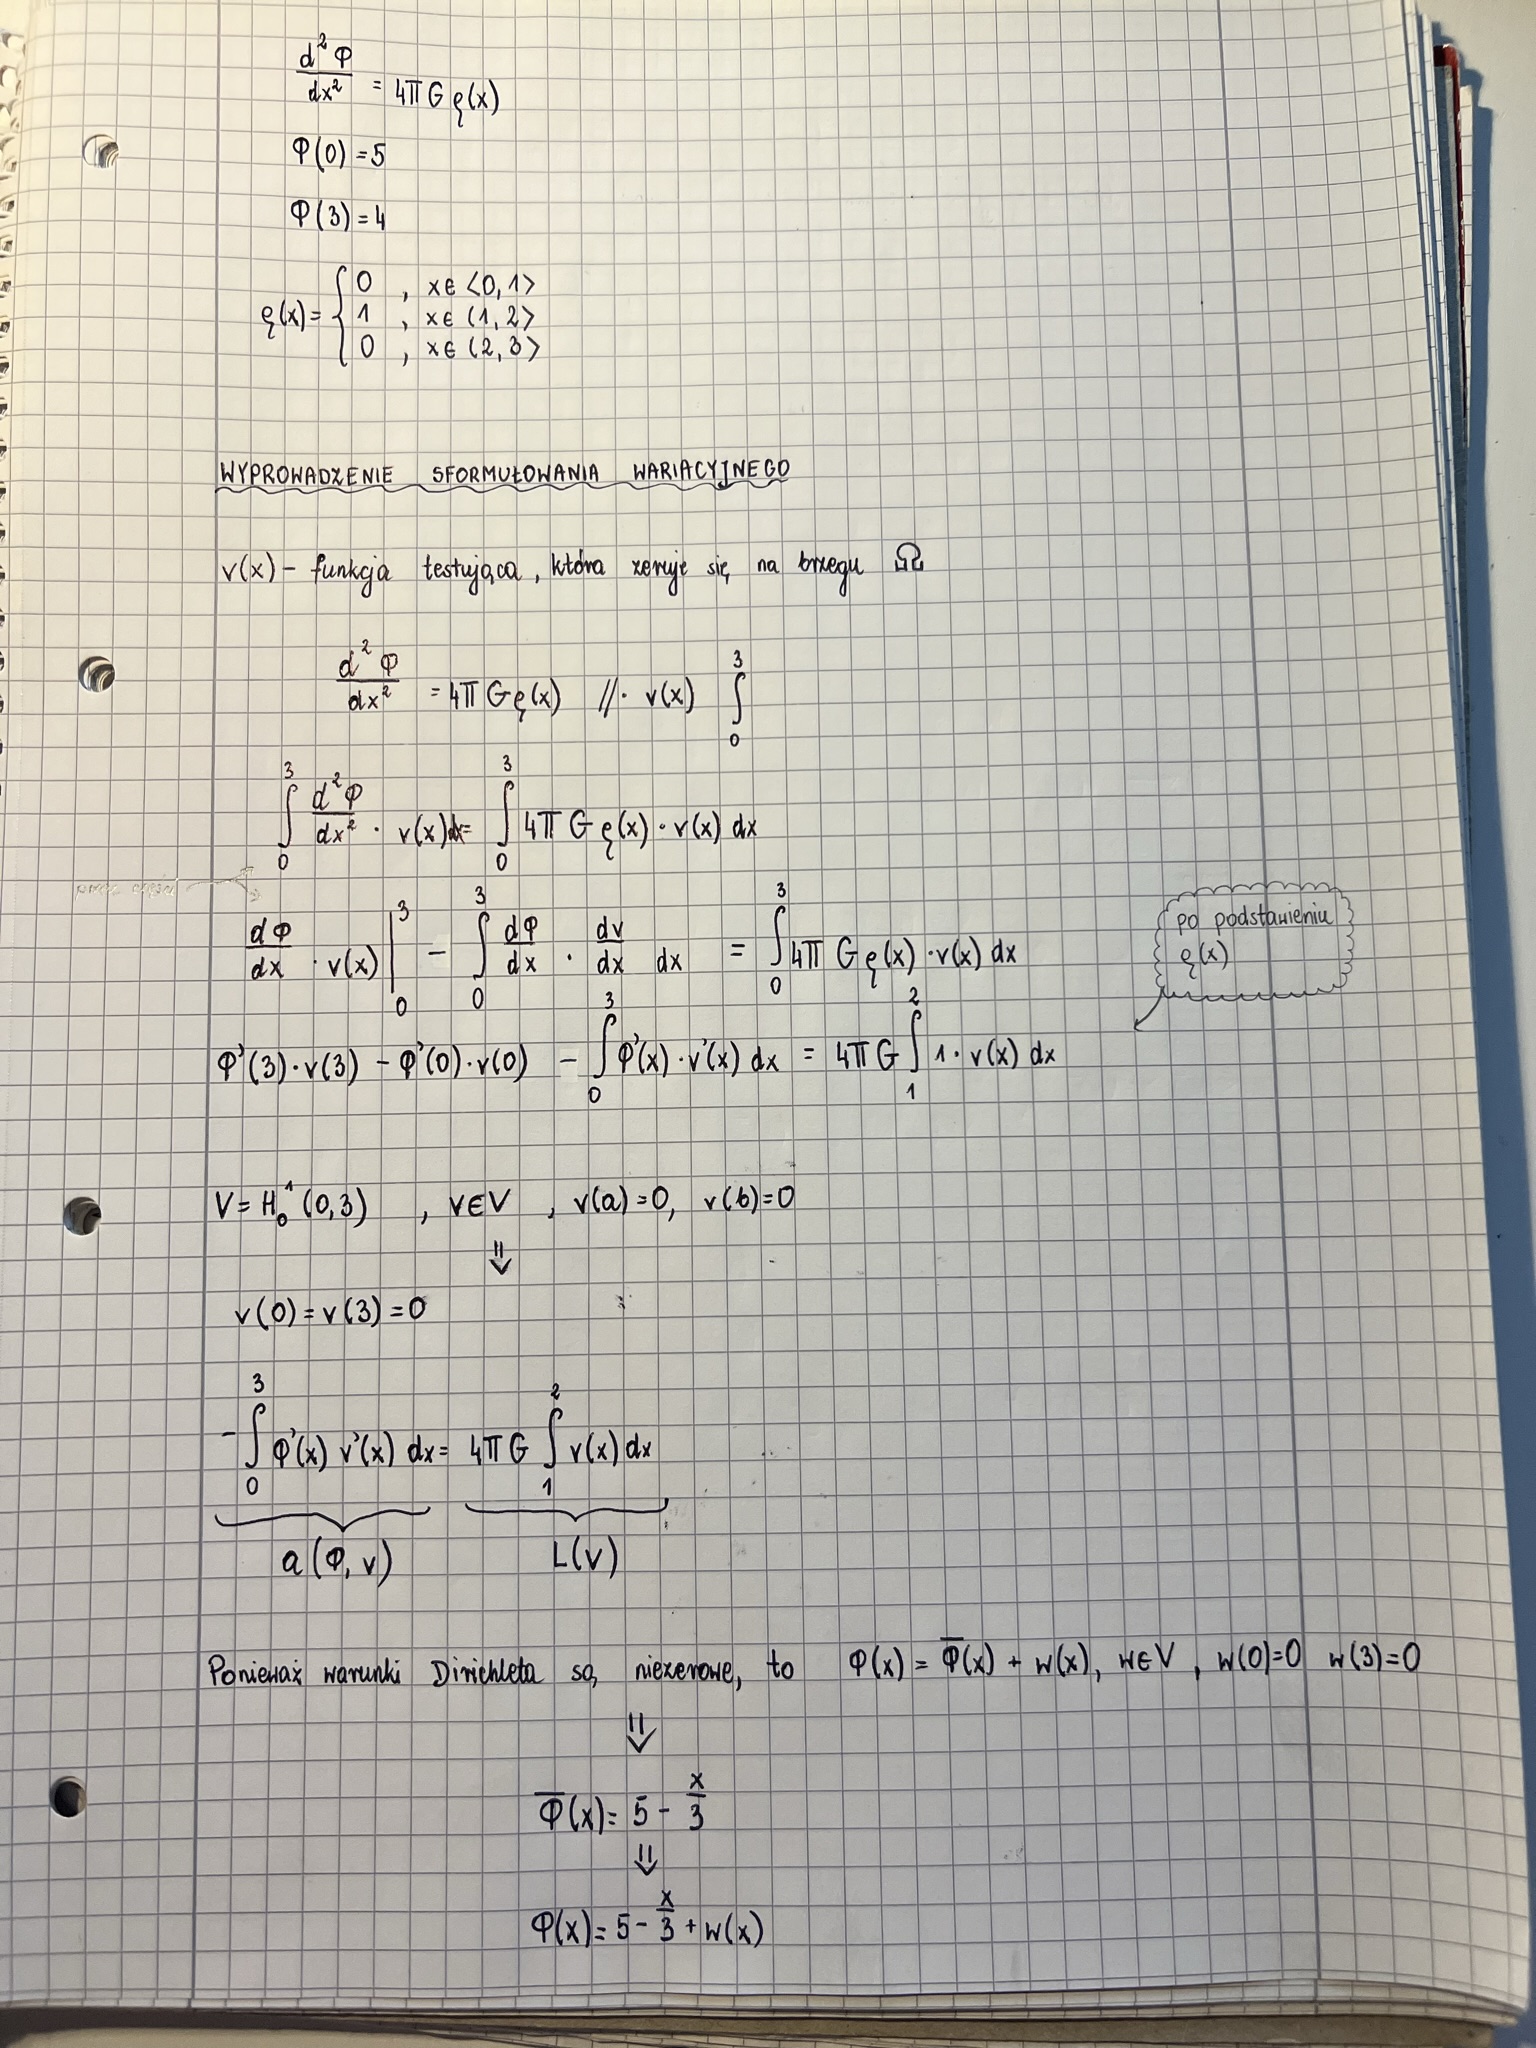 d²Φ/dx² = 4πG ρ(x)
Φ(0) = 5
Φ(3) = 4
ρ(x) = { 0 , x∈⟨0,1⟩
1 , x∈(1,2⟩
0 , x∈(2,3⟩
WYPROWADZENIE SFORMUŁOWANIA WARIACYJNEGO
v(x) – funkcja testująca, która zeruje się na brzegu Ω
d²Φ/dx² = 4πGρ(x) //· v(x) ∫₀³
∫₀³ d²Φ/dx² · v(x)dx = ∫₀³ 4πG ρ(x) · v(x) dx
dΦ/dx · v(x) |₀³ – ∫₀³ dΦ/dx · dv/dx dx = ∫₀³ 4πG ρ(x) · v(x) dx
po podstawieniu
ρ(x)
Φ'(3)·v(3) – Φ'(0)·v(0) – ∫₀³ Φ'(x)·v'(x) dx = 4πG ∫₁² 1·v(x) dx
V = H₀¹(0,3) , v∈V , v(a)=0, v(b)=0
⇓
v(0) = v(3) = 0
-∫₀³ Φ'(x) v'(x) dx = 4πG ∫₁² v(x) dx
a(Φ, v) L(v)
Ponieważ warunki Dirichleta są niezerowe, to Φ(x) = Φ̅(x) + w(x), w∈V, w(0)=0 w(3)=0
⇓
Φ̅(x) = 5 – x/3
⇓
Φ(x) = 5 – x/3 + w(x)